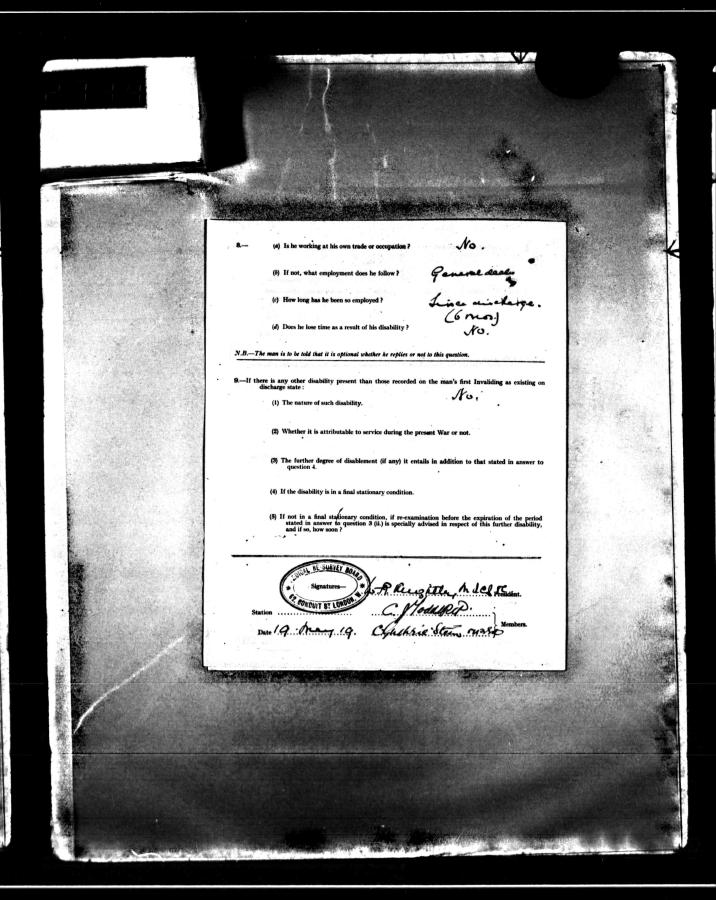 8.— (a) Is he working at his own trade or occupation ? No.
(b) If not, what employment does he follow ? General dealer
(c) How long has he been so employed ? Since discharge.
(6 mos)
(d) Does he lose time as a result of his disability ? No.
N.B.—The man is to be told that it is optional whether he replies or not to this question.
9.—If there is any other disability present than those recorded on the man's first Invaliding as existing on
discharge state :
No.
(1) The nature of such disability.
(2) Whether it is attributable to service during the present War or not.
(3) The further degree of disablement (if any) it entails in addition to that stated in answer to
question 4.
(4) If the disability is in a final stationary condition.
(5) If not in a final stationary condition, if re-examination before the expiration of the period
stated in answer to question 3 (ii.) is specially advised in respect of this further disability,
and if so, how soon ?
RE SURVEY BOARD
Signatures—
President.
CONDUIT ST LONDON, W.
Station
Members.
Date 19 May 19.